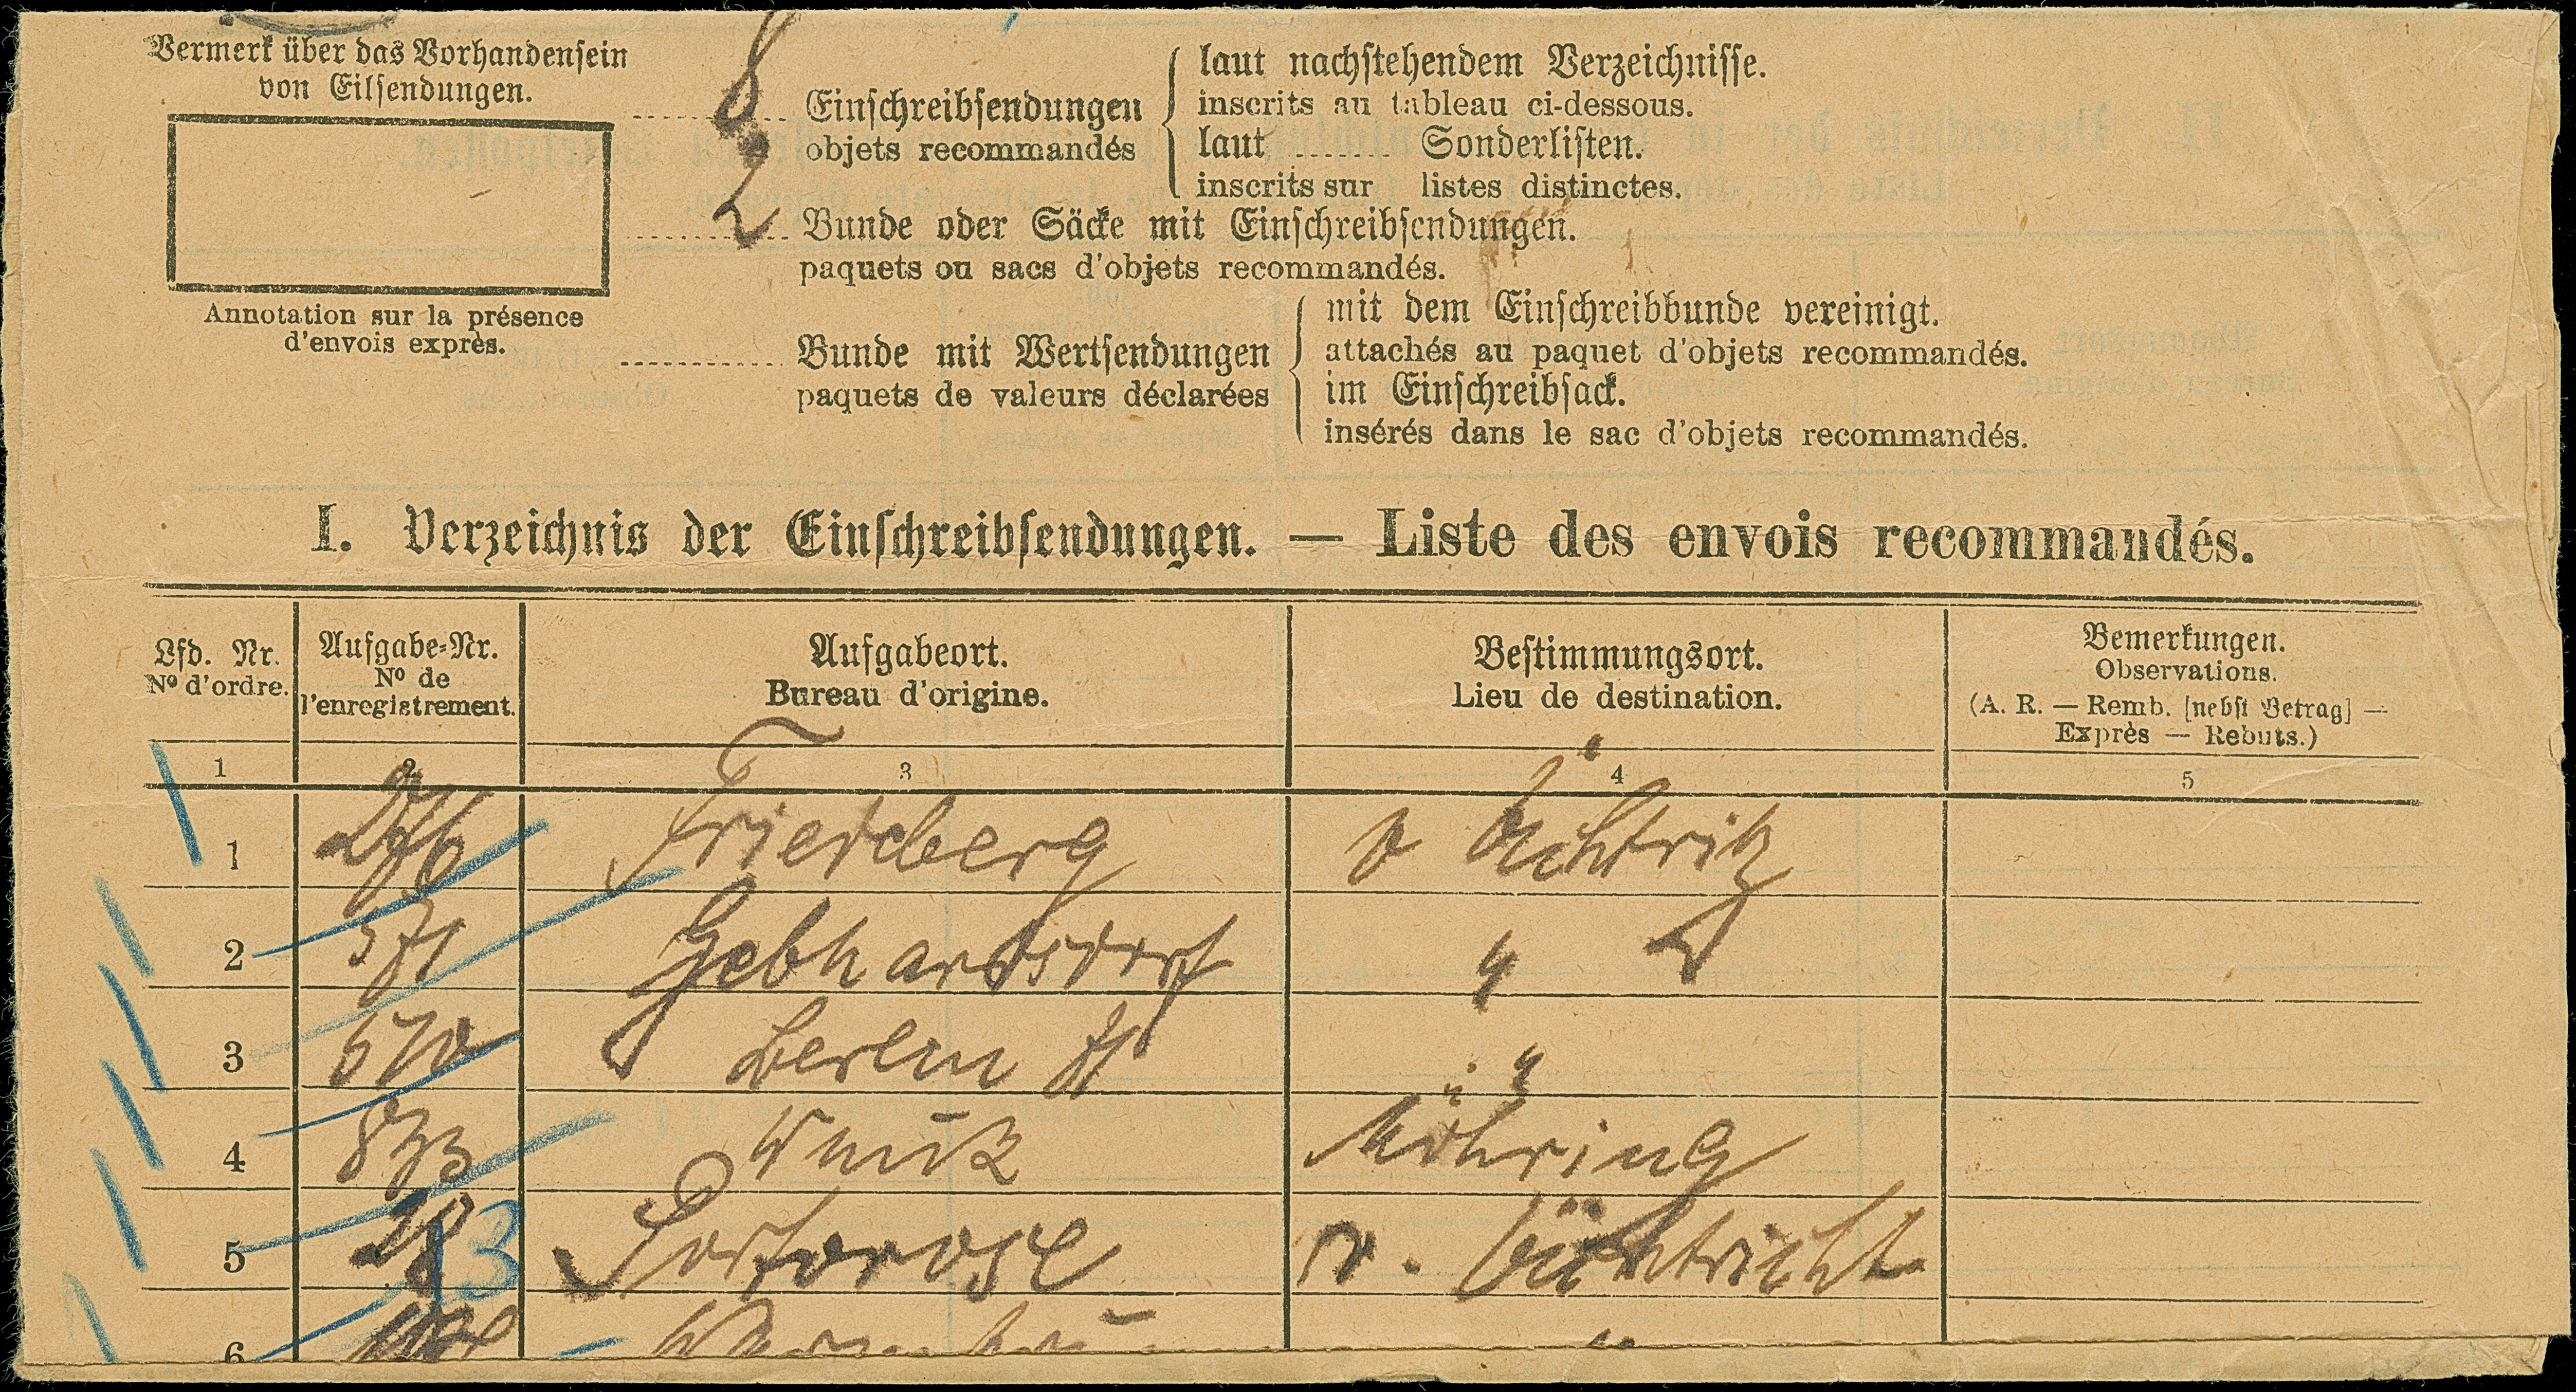 Vermerk über das Vorhandensein
von Eilsendungen.
Annotation sur la présence
d'envois exprès.
8 Einschreibsendungen
objets recommandés
laut nachstehendem Verzeichnisse.
inscrits au tableau ci-dessous.
laut ....... Sonderlisten.
inscrits sur listes distinctes.
2 Bunde oder Säcke mit Einschreibsendungen.
paquets ou sacs d'objets recommandés.
Bunde mit Wertsendungen
paquets de valeurs déclarées
mit dem Einschreibbunde vereinigt.
attachés au paquet d'objets recommandés.
im Einschreibsack.
insérés dans le sac d'objets recommandés.
I. Verzeichnis der Einschreibsendungen. — Liste des envois recommandés.
Lfd. Nr.
Nº d'ordre.
Aufgabe-Nr.
Nº de
l'enregistrement.
Aufgabeort.
Bureau d'origine.
Bestimmungsort.
Lieu de destination.
Bemerkungen.
Observations.
(A. R. — Remb. [nebst Betrag] —
Exprès — Rebuts.)
1 2 3 4 5
1 Friedeberg v
2 571 Gebhardsdorf "
3 Berlin "
4 Möhring
5 13 v.
6 "